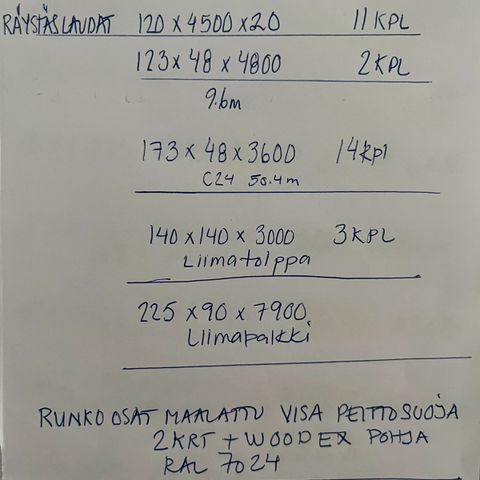 RÄYSTÄSLAUDAT 120 x 4500 x 20 11 KPL
123 x 48 x 4800 2 KPL
9.6m
173 x 48 x 3600 14 kpl
C24 50.4 m
140 x 140 x 3000 3 KPL
Liimatolppa
225 x 90 x 7900
Liimapalkki
RUNKO OSAT MAALATTU VISA PEITTOSUOJA
2 KRT + WOODEX POHJA
RAL 7024